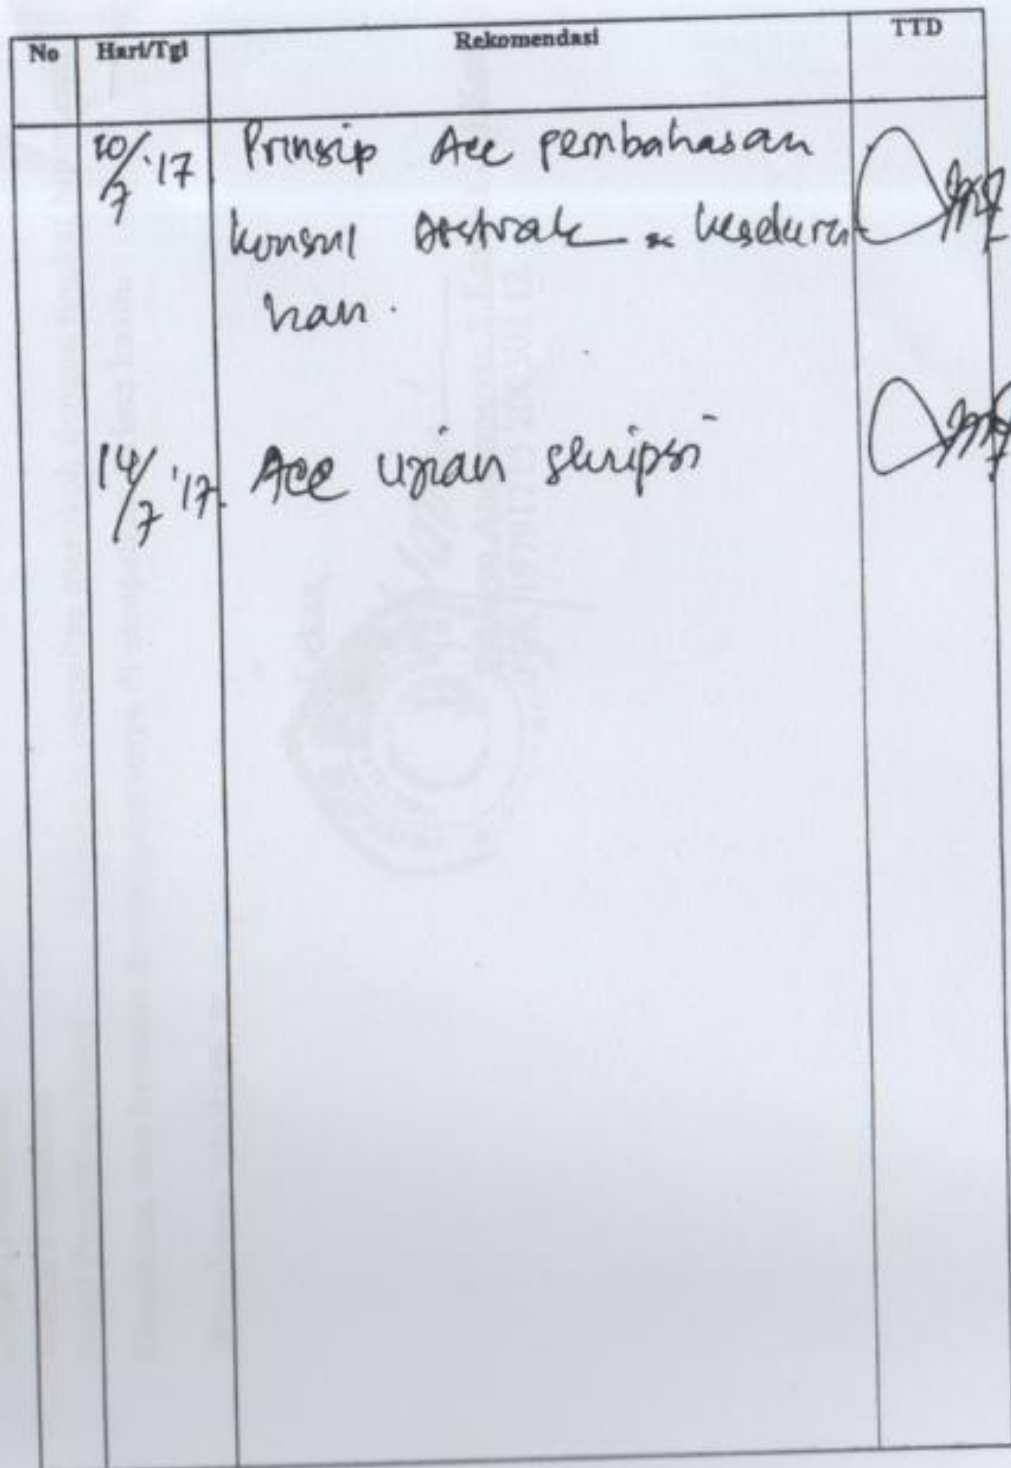 No Hari/Tgl Rekomendasi TTD
10/7 '17 Prinsip Acc pembahasan
konsul Abstrak & keseluru
han.
14/7 '17. Acc ujian skripsi